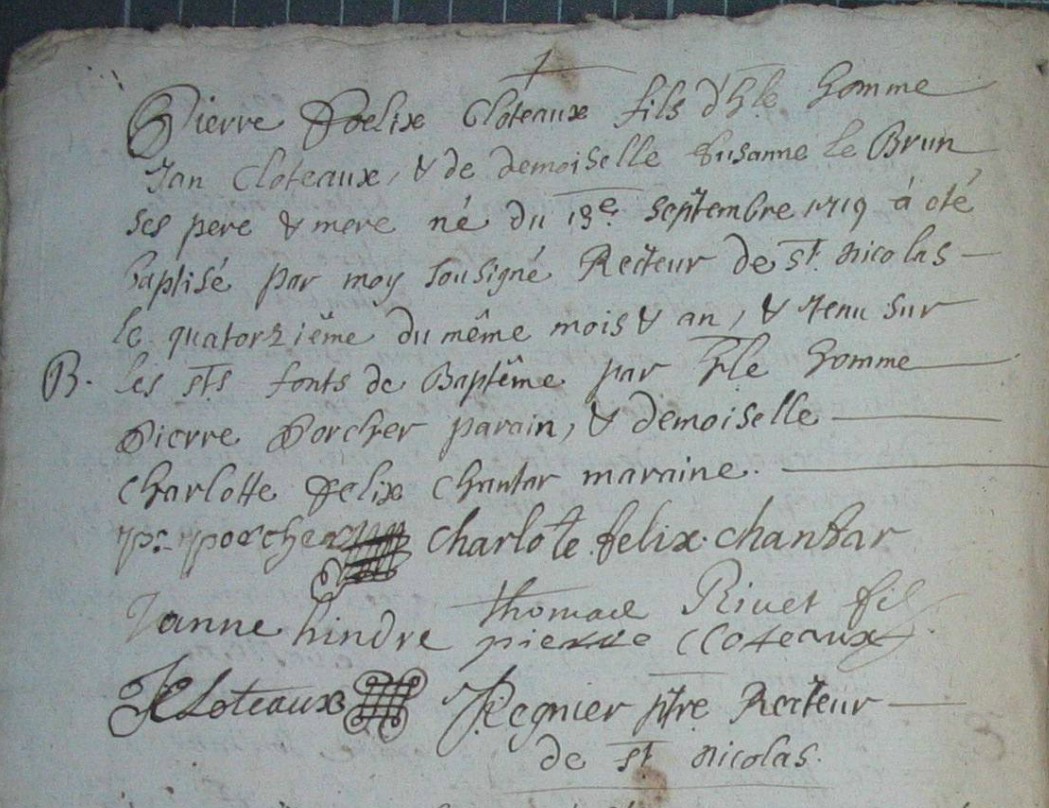 Pierre Foelix Cloteaux fils d'hle homme
Jan Cloteaux, & de demoiselle Susanne le Brun
ses pere & mere né du 13e septembre 1719 à oté
baptisé par moy sousigné Recteur de st. nicolas
le quatorzième du même mois & an, & tenu sur
B. les sts fonts de Baptême par hle homme
Pierre Porcher parain, & demoiselle
charlotte Felix Chantar maraine.
pr. porcher charlote felix chantar
Janne hindre thomas Rivet fils
pierre Cloteaux
JCloteaux J. Regnier ptre Recteur
de st nicolas.